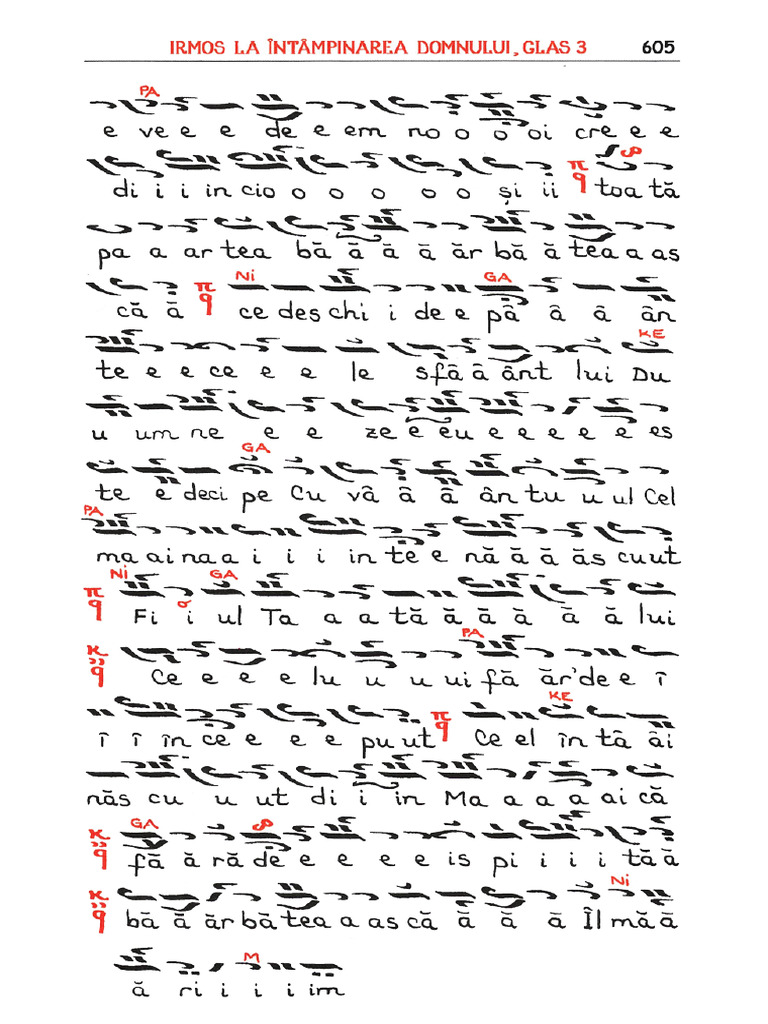 IRMOS LA ÎNTÂMPINAREA DOMNULUI, GLAS 3 605
PA
e ve e e de e em no o o oi cre e e
di i i in cio o o o o o și i i toa tă
pa a ar tea bă ă ă ă ăr bă ă tea a as
că ă Ni ce des chi i de e GA pâ â â ân
KE
te e e ce e e le sfâ â ânt lui Du
u um ne e e ze e eu e e e e e es
GA
te e deci pe Cu vâ â â ân tu u ul Cel
PA
ma ai na a i i i in te e nă ă ă ăs cu ut
Ni GA
Fi i ul Ta a a tă ă ă ă ă ă lui
PA
Ce e e e lu u u ui fă ăr'de e î
KE
î î în ce e e e pu ut Ce el în tâ âi
năs cu u ut di i in Ma a a a ai că
GA
fă ă ră de e e e e is pi i i i tă ă
Ni
bă ă ăr bă tea a as că ă ă ă Îl mă ă
M
ă ri i i i im